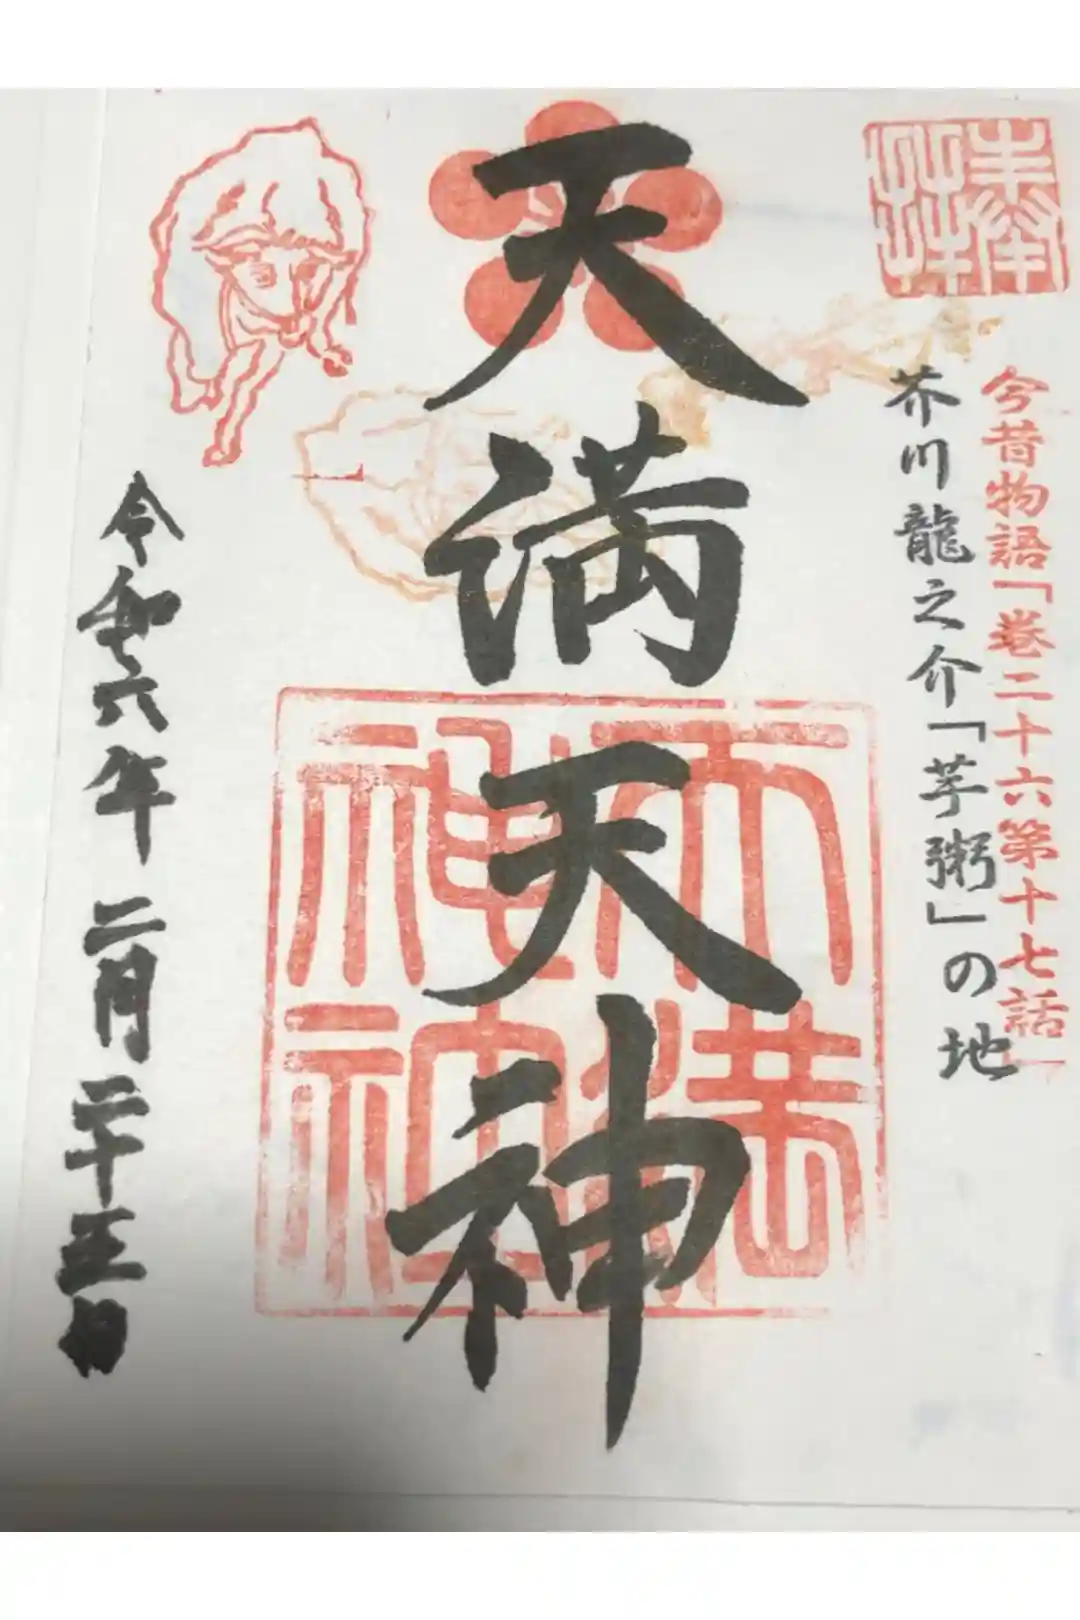 奉拝
今昔物語「巻二十六第十七話」
芥川龍之介「芋粥」の地
天満天神
天満神社
令和六年 二月 二十五日